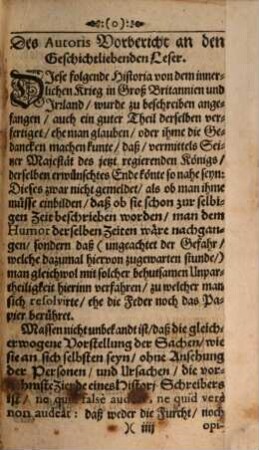 :(o):
Des Autoris Vorbericht an den
Geschichtliebenden Leser.
DJese folgende Historia von dem inner-
lichen Krieg in Groß Britannien und
Jrrland / wurde zu beschreiben ange-
fangen / auch ein guter Theil derselben ver-
fertiget / ehe man glauben / oder ihme die Ge-
dancken machen kunte / daß / vermittels Sei-
ner Majestät des jetzt regierenden Königs /
derselben erwünschtes Ende könte so nahe seyn:
Dieses zwar nicht gemeldet / als ob man ihme
müsse einbilden / daß ob sie schon zur selbi-
gen Zeit beschrieben worden / man dem
Humor derselben Zeiten wäre nachgan-
gen / sondern daß (ungeachtet der Gefahr /
welche dazumal hiervon zugewarten stunde /)
man gleichwol mit solcher behutsamen Unpar-
theiligkeit hierinn verfahren / zu welcher man
sich resolvirte / ehe die Feder noch das Pa-
pier berühret.
Massen nicht unbekandt ist / daß die gleich-
erwogene Vorstellung der Sachen / wie
sie an sich selbsten seyn / ohne Ansehung
der Personen / und Ursachen / die vor-
nehmste Zierde eines Historj-Schreibers
ist / ne quid false audeat, ne quid vere
non audeat: daß weder die Furcht / noch
)( iiij opi-